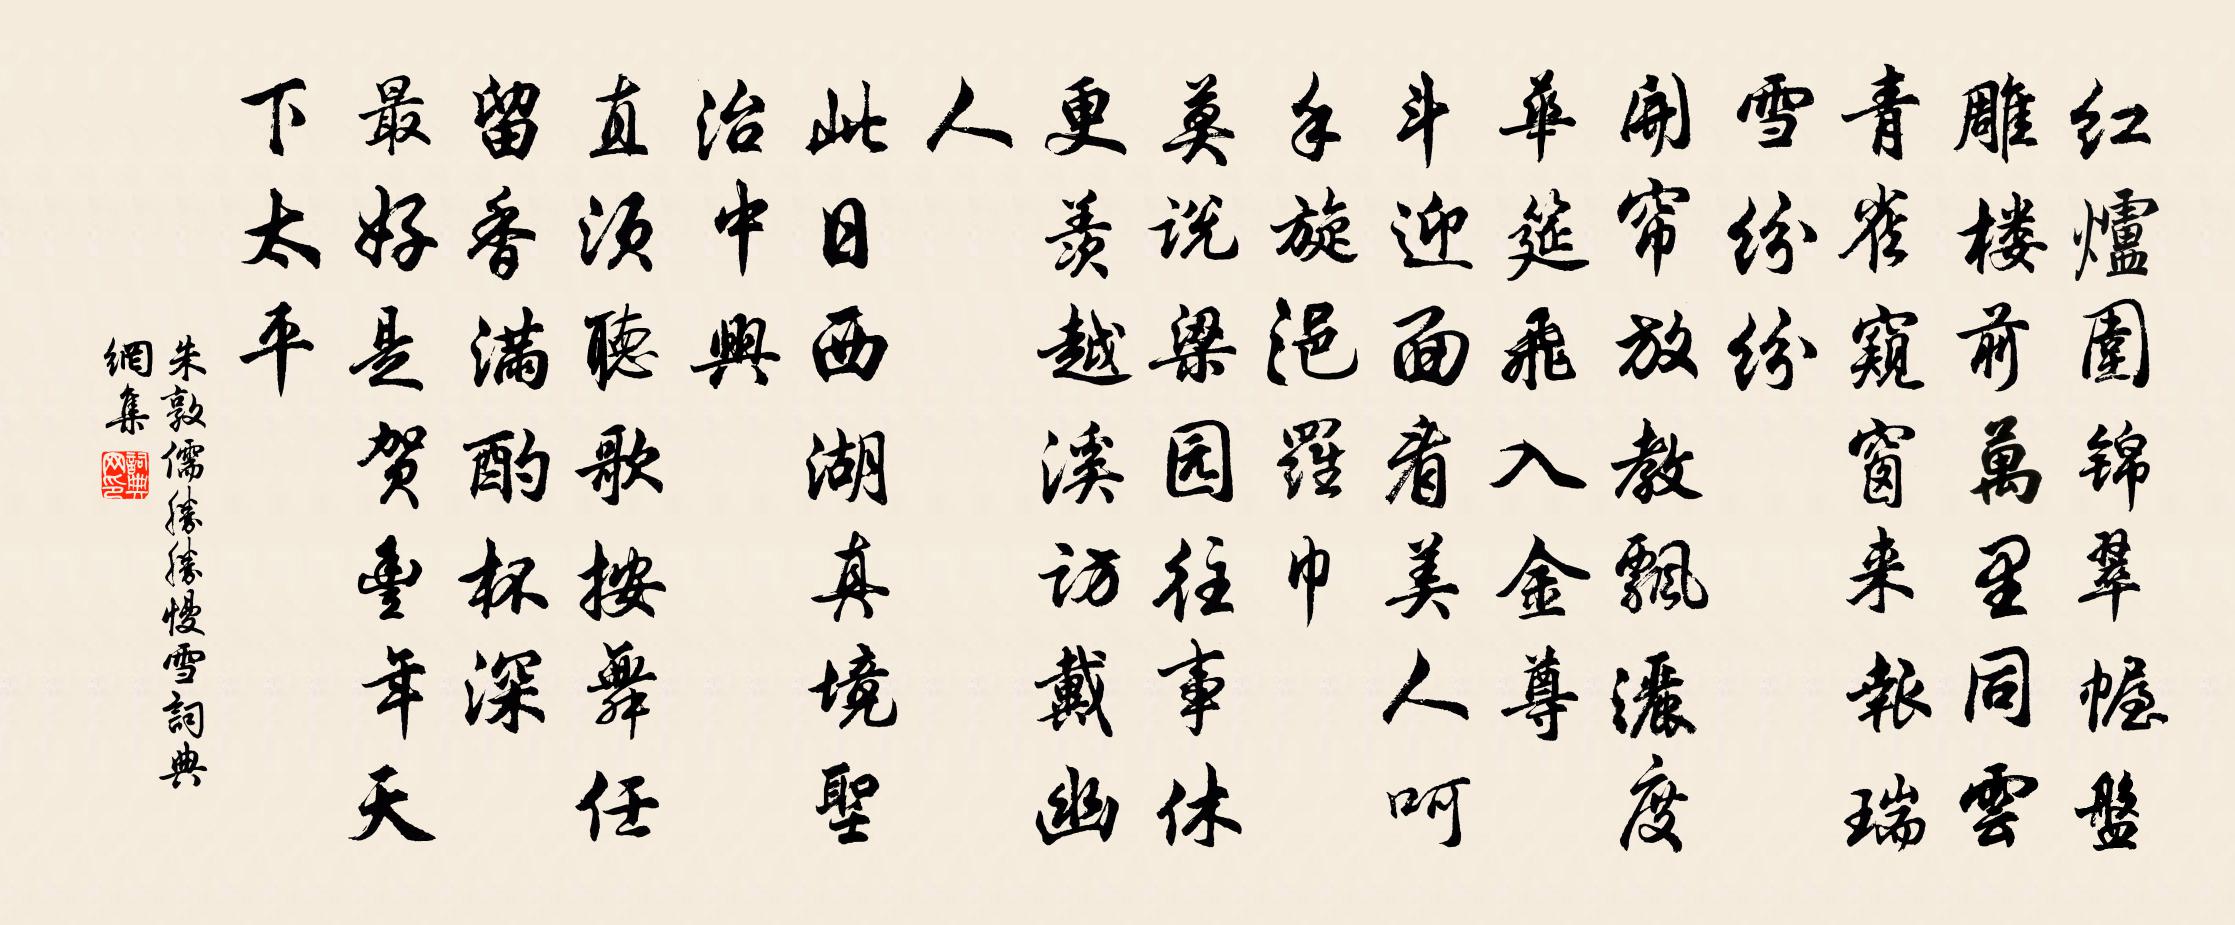 红爐围锦翠幄盤
雕楼前萬里同雲
青雀窺窗来報瑞
雪纷纷
開帘放教飄灑度
華筵飛入金尊
斗迎面看美人呵
手旋浥羅巾
莫说梁园往事休
更羡越溪访戴幽
人
此日西湖真境聖
治中興
直须聽歌按舞任
留香满酌杯深
最好是贺豊年天
下太平
朱敦儒勝勝慢雪詞典
網集
詞典網印